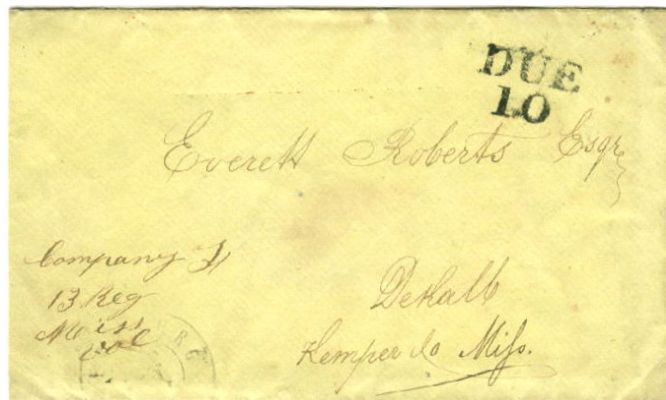 DUE
10
Everett Roberts Esqr
Company
13 Reg
Miss
Vol
DeKalb
Kemper Co Miſs.